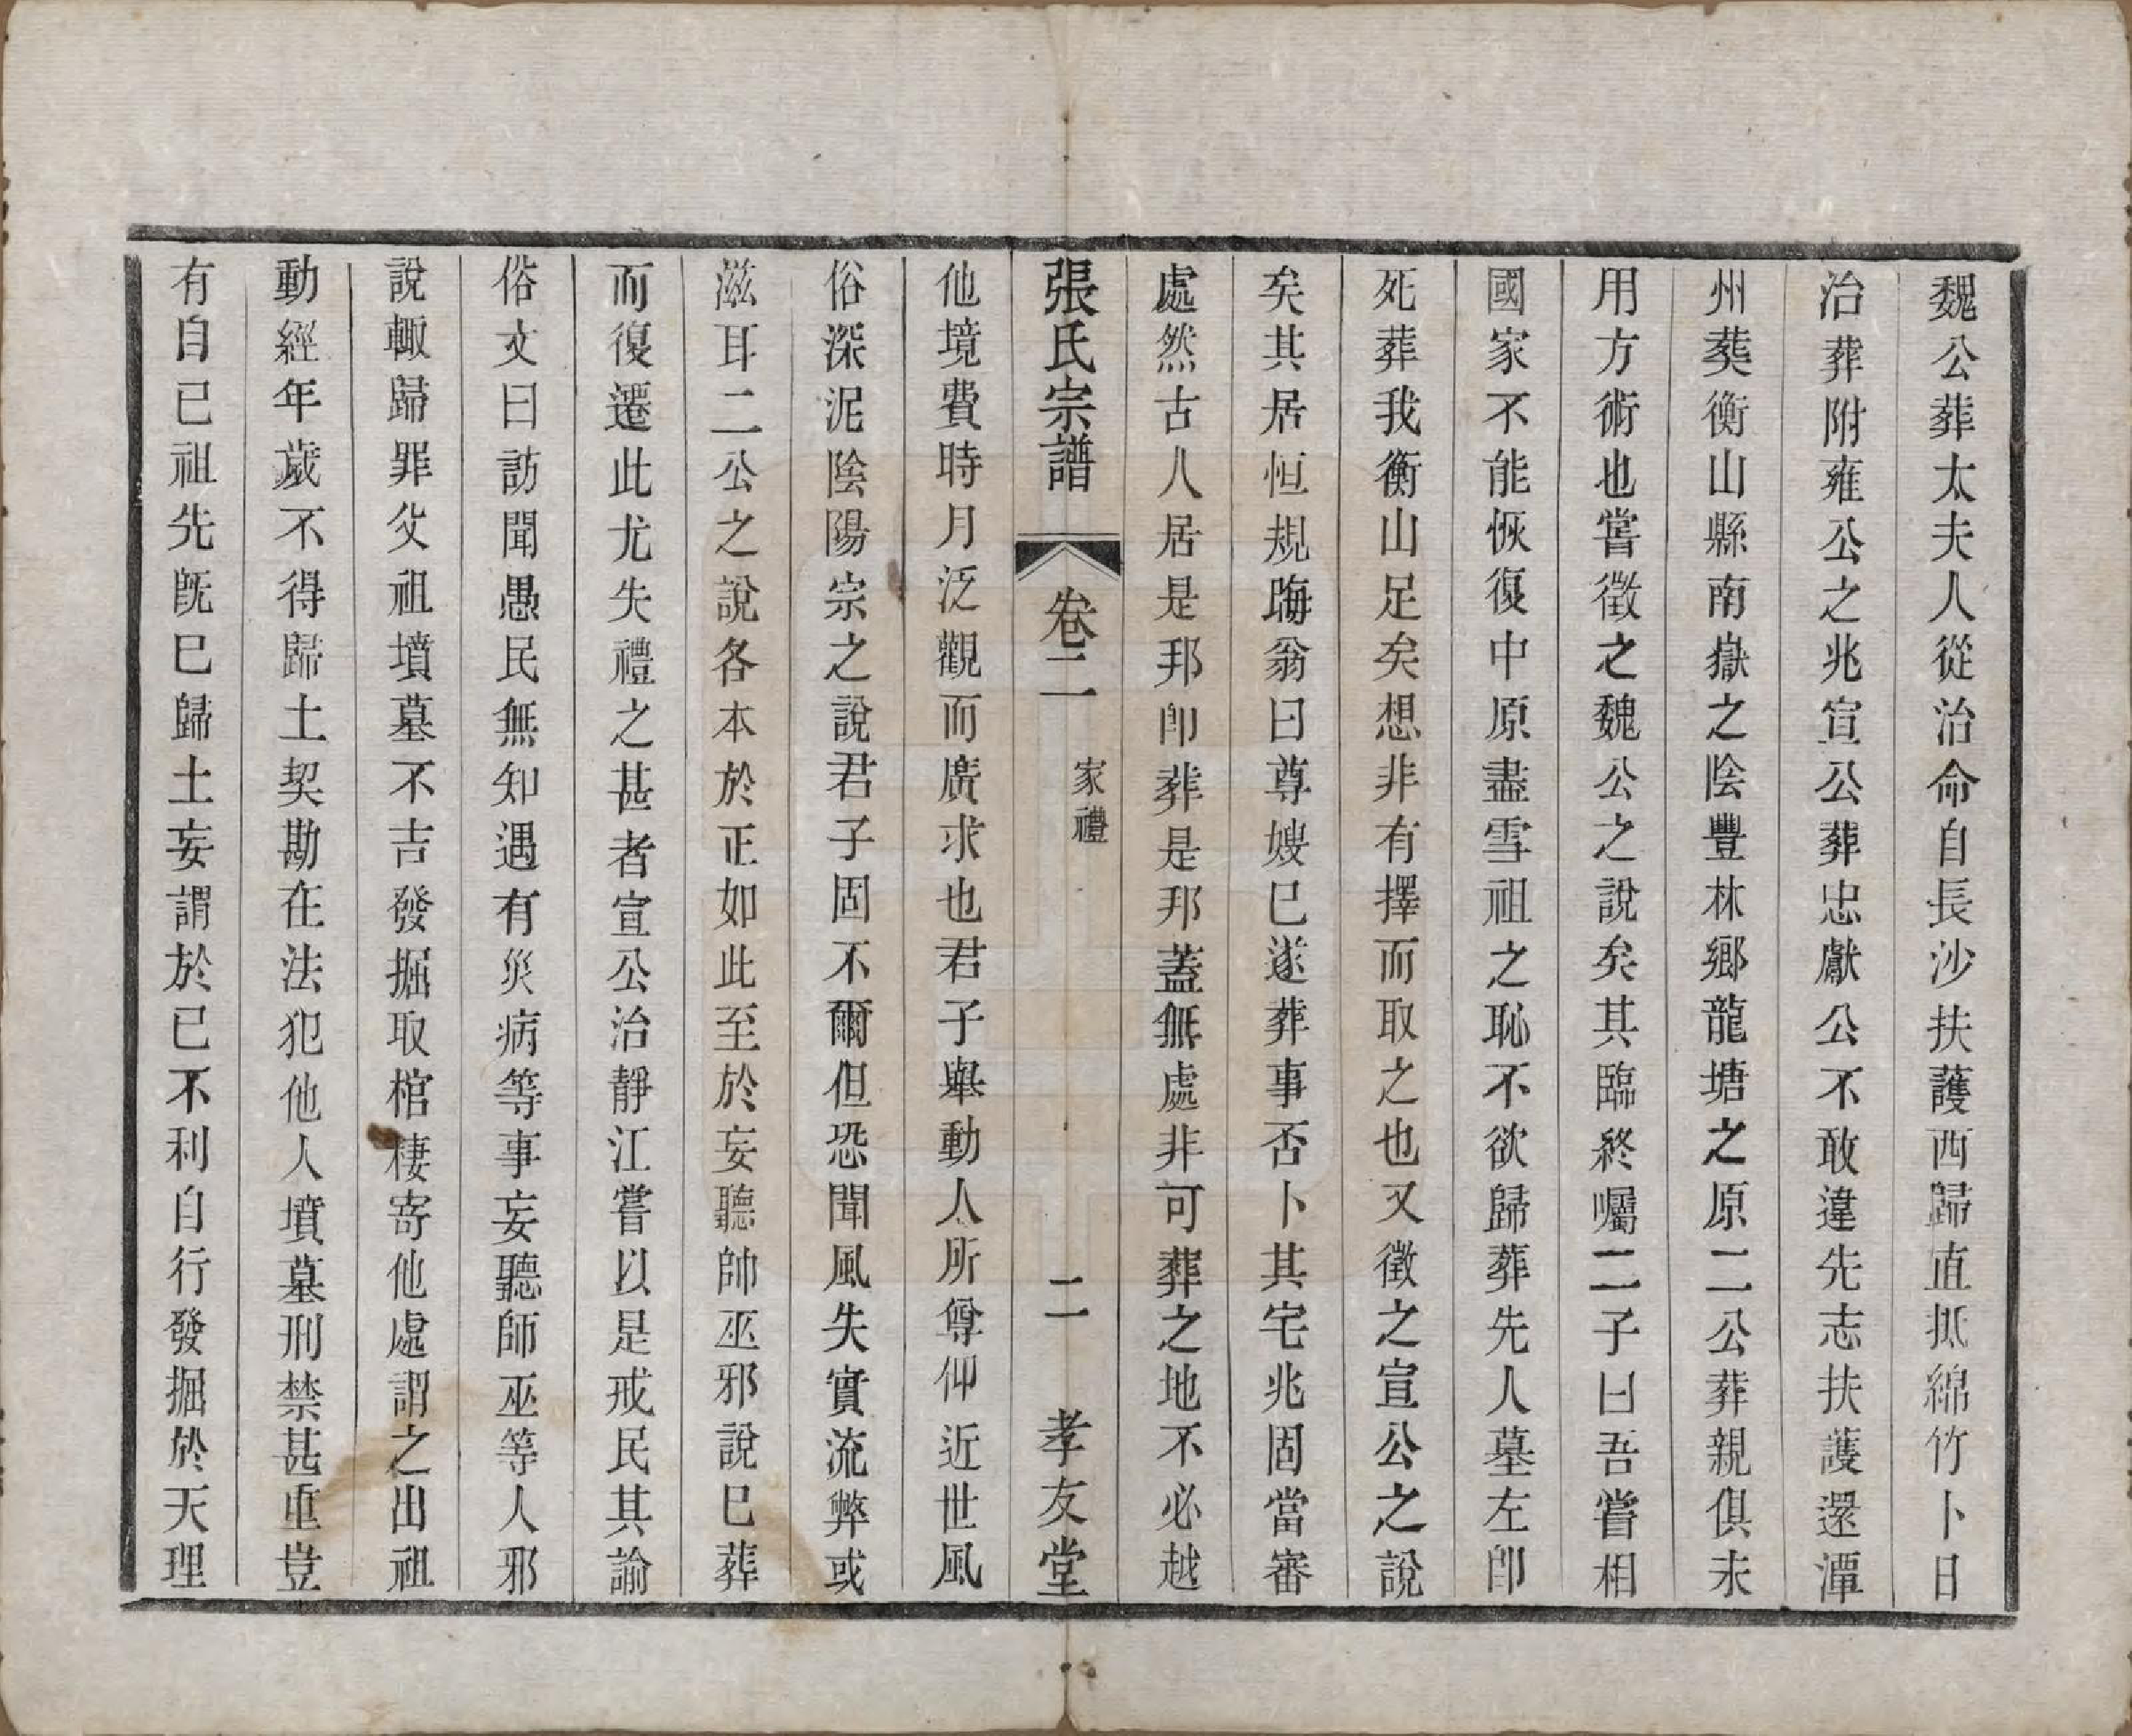 魏公葬太夫人從治命自長沙扶護西歸直抵綿竹卜日
治葬附雍公之兆宣公葬忠獻公不敢違先志扶護還潭
州葬衡山縣南嶽之陰豐林鄉龍塘之原二公葬親俱未
用方術也嘗徵之魏公之說矣其臨終囑二子曰吾嘗相
國家不能恢復中原盡雪祖之恥不欲歸葬先人墓左卽
死葬我衡山足矣想非有擇而取之也又徵之宣公之說
矣其居恒規晦翁曰尊嫂已遂葬事否卜其宅兆固當審
處然古人居是邦卽葬是邦蓋無處非可葬之地不必越
張氏宗譜 卷二 家禮 二 孝友堂
他境費時月泛觀而廣求也君子舉動人所尊仰近世風
俗深泥陰陽宗之說君子固不爾但恐聞風失實流弊或
滋耳二公之說各本於正如此至於妄聽帥巫邪說已葬
而復遷此尤失禮之甚者宣公治靜江嘗以是戒民其諭
俗文曰訪聞愚民無知遇有災病等事妄聽師巫等人邪
說輙歸罪父祖墳墓不吉發掘取棺棲寄他處謂之出祖
動經年歲不得歸土契勘在法犯他人墳墓刑禁甚重豈
有自已祖先旣已歸土妄謂於已不利自行發掘於天理